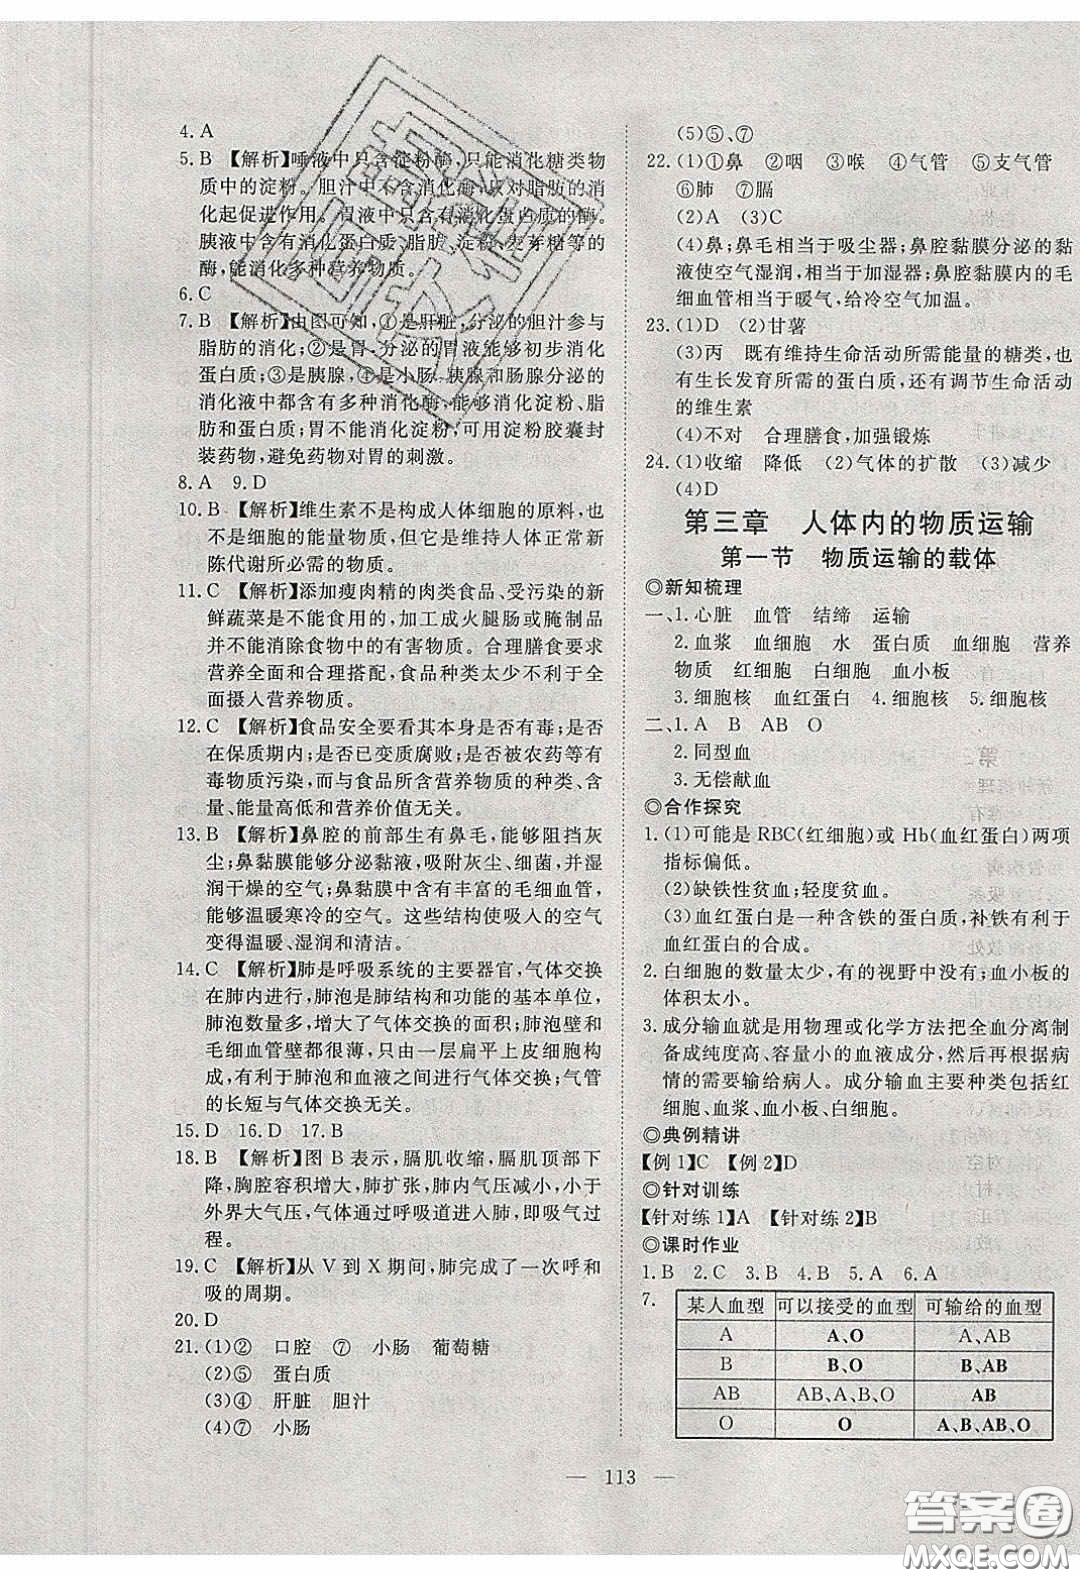 4. A
5. B 【解析】唾液中只含淀粉酶,只能消化糖类物
质中的淀粉。胆汁中不含消化酶,仅对脂肪的消
化起促进作用。胃液中只含有消化蛋白质的酶。
胰液中含有消化蛋白质、脂肪、淀粉、麦芽糖等的
酶,能消化多种营养物质。
6. C
7. B 【解析】由图可知,①是肝脏,分泌的胆汁参与
脂肪的消化;②是胃,分泌的胃液能够初步消化
蛋白质;③是胰腺,④是小肠,胰腺和肠腺分泌的
消化液中都含有多种消化酶,能够消化淀粉、脂
肪和蛋白质;胃不能消化淀粉,可用淀粉胶囊封
装药物,避免药物对胃的刺激。
8. A 9. D
10. B 【解析】维生素不是构成人体细胞的原料,也
不是细胞的能量物质,但它是维持人体正常新
陈代谢所必需的物质。
11. C 【解析】添加瘦肉精的肉类食品、受污染的新
鲜蔬菜是不能食用的,加工成火腿肠或腌制品
并不能消除食物中的有害物质。合理膳食要求
营养全面和合理搭配,食品种类太少不利于全
面摄入营养物质。
12. C 【解析】食品安全要看其本身是否有毒;是否
在保质期内;是否已变质腐败;是否被农药等有
毒物质污染,而与食品所含营养物质的种类、含
量、能量高低和营养价值无关。
13. B 【解析】鼻腔的前部生有鼻毛,能够阻挡灰
尘;鼻黏膜能够分泌黏液,吸附灰尘、细菌,并湿
润干燥的空气;鼻黏膜中含有丰富的毛细血管,
能够温暖寒冷的空气。这些结构使吸入的空气
变得温暖、湿润和清洁。
14. C 【解析】肺是呼吸系统的主要器官,气体交换
在肺内进行,肺泡是肺结构和功能的基本单位,
肺泡数量多,增大了气体交换的面积;肺泡壁和
毛细血管壁都很薄,只由一层扁平上皮细胞构
成,有利于肺泡和血液进行气体交换;气管
的长短与气体交换无关。
15. D 16. D 17. B
18. B 【解析】图 B 表示,膈肌收缩,膈肌顶部下
降,胸腔容积增大,肺扩张,肺内气压减小,小于
外界大气压,气体通过呼吸道进入肺,即吸气过
程。
19. C 【解析】从 V 到 X 期间,肺完成了一次呼和
吸的周期。
20. D
21. (1)② 口腔 ⑦ 小肠 葡萄糖
(2)⑤ 蛋白质
(3)④ 肝脏 胆汁
(4)⑦ 小肠
(5)⑤、⑦
22. (1)①鼻 ②咽 ③喉 ④气管 ⑤支气管
⑥肺 ⑦膈
(2)A (3)C
(4)鼻;鼻毛相当于吸尘器;鼻腔黏膜分泌的黏
液使空气湿润,相当于加湿器;鼻腔黏膜内的毛
细血管相当于暖气,给冷空气加温。
23. (1)D (2)甘薯
(3)丙 既有维持生命活动所需能量的糖类,也
有生长发育所需的蛋白质,还有调节生命活动
的维生素
(4)不对 合理膳食,加强锻炼
24. (1)收缩 降低 (2)气体的扩散 (3)减少
(4)D
第三章 人体内的物质运输
第一节 物质运输的载体
◎新知梳理
一、1. 心脏 血管 结缔 运输
2. 血浆 血细胞 水 蛋白质 血细胞 营养
物质 红细胞 白细胞 血小板
3. 细胞核 血红蛋白 4. 细胞核 5. 细胞核
二、1. A B AB O
2. 同型血
3. 无偿献血
◎合作探究
1. (1)可能是 RBC(红细胞)或 Hb(血红蛋白)两项
指标偏低。
(2)缺铁性贫血;轻度贫血。
(3)血红蛋白是一种含铁的蛋白质,补铁有利于
血红蛋白的合成。
2. 白细胞的数量太少,有的视野中没有;血小板的
体积太小。
3. 成分输血就是用物理或化学方法把全血分离制
备成纯度高、容量小的血液成分,然后再根据病
情的需要输给病人。成分输血主要种类包括红
细胞、血浆、血小板、白细胞。
◎典例精讲
【例 1】C 【例 2】D
◎针对训练
【针对练 1】A 【针对练 2】B
◎课时作业
1. B 2. C 3. B 4. B 5. A 6. A
7.
某人血型 可以接受的血型 可输给的血型
A A、O A、AB
B B、O B、AB
AB AB、A、B、O AB
O O A、B、AB、O
— 113 —
答案圈
MXQE.COM